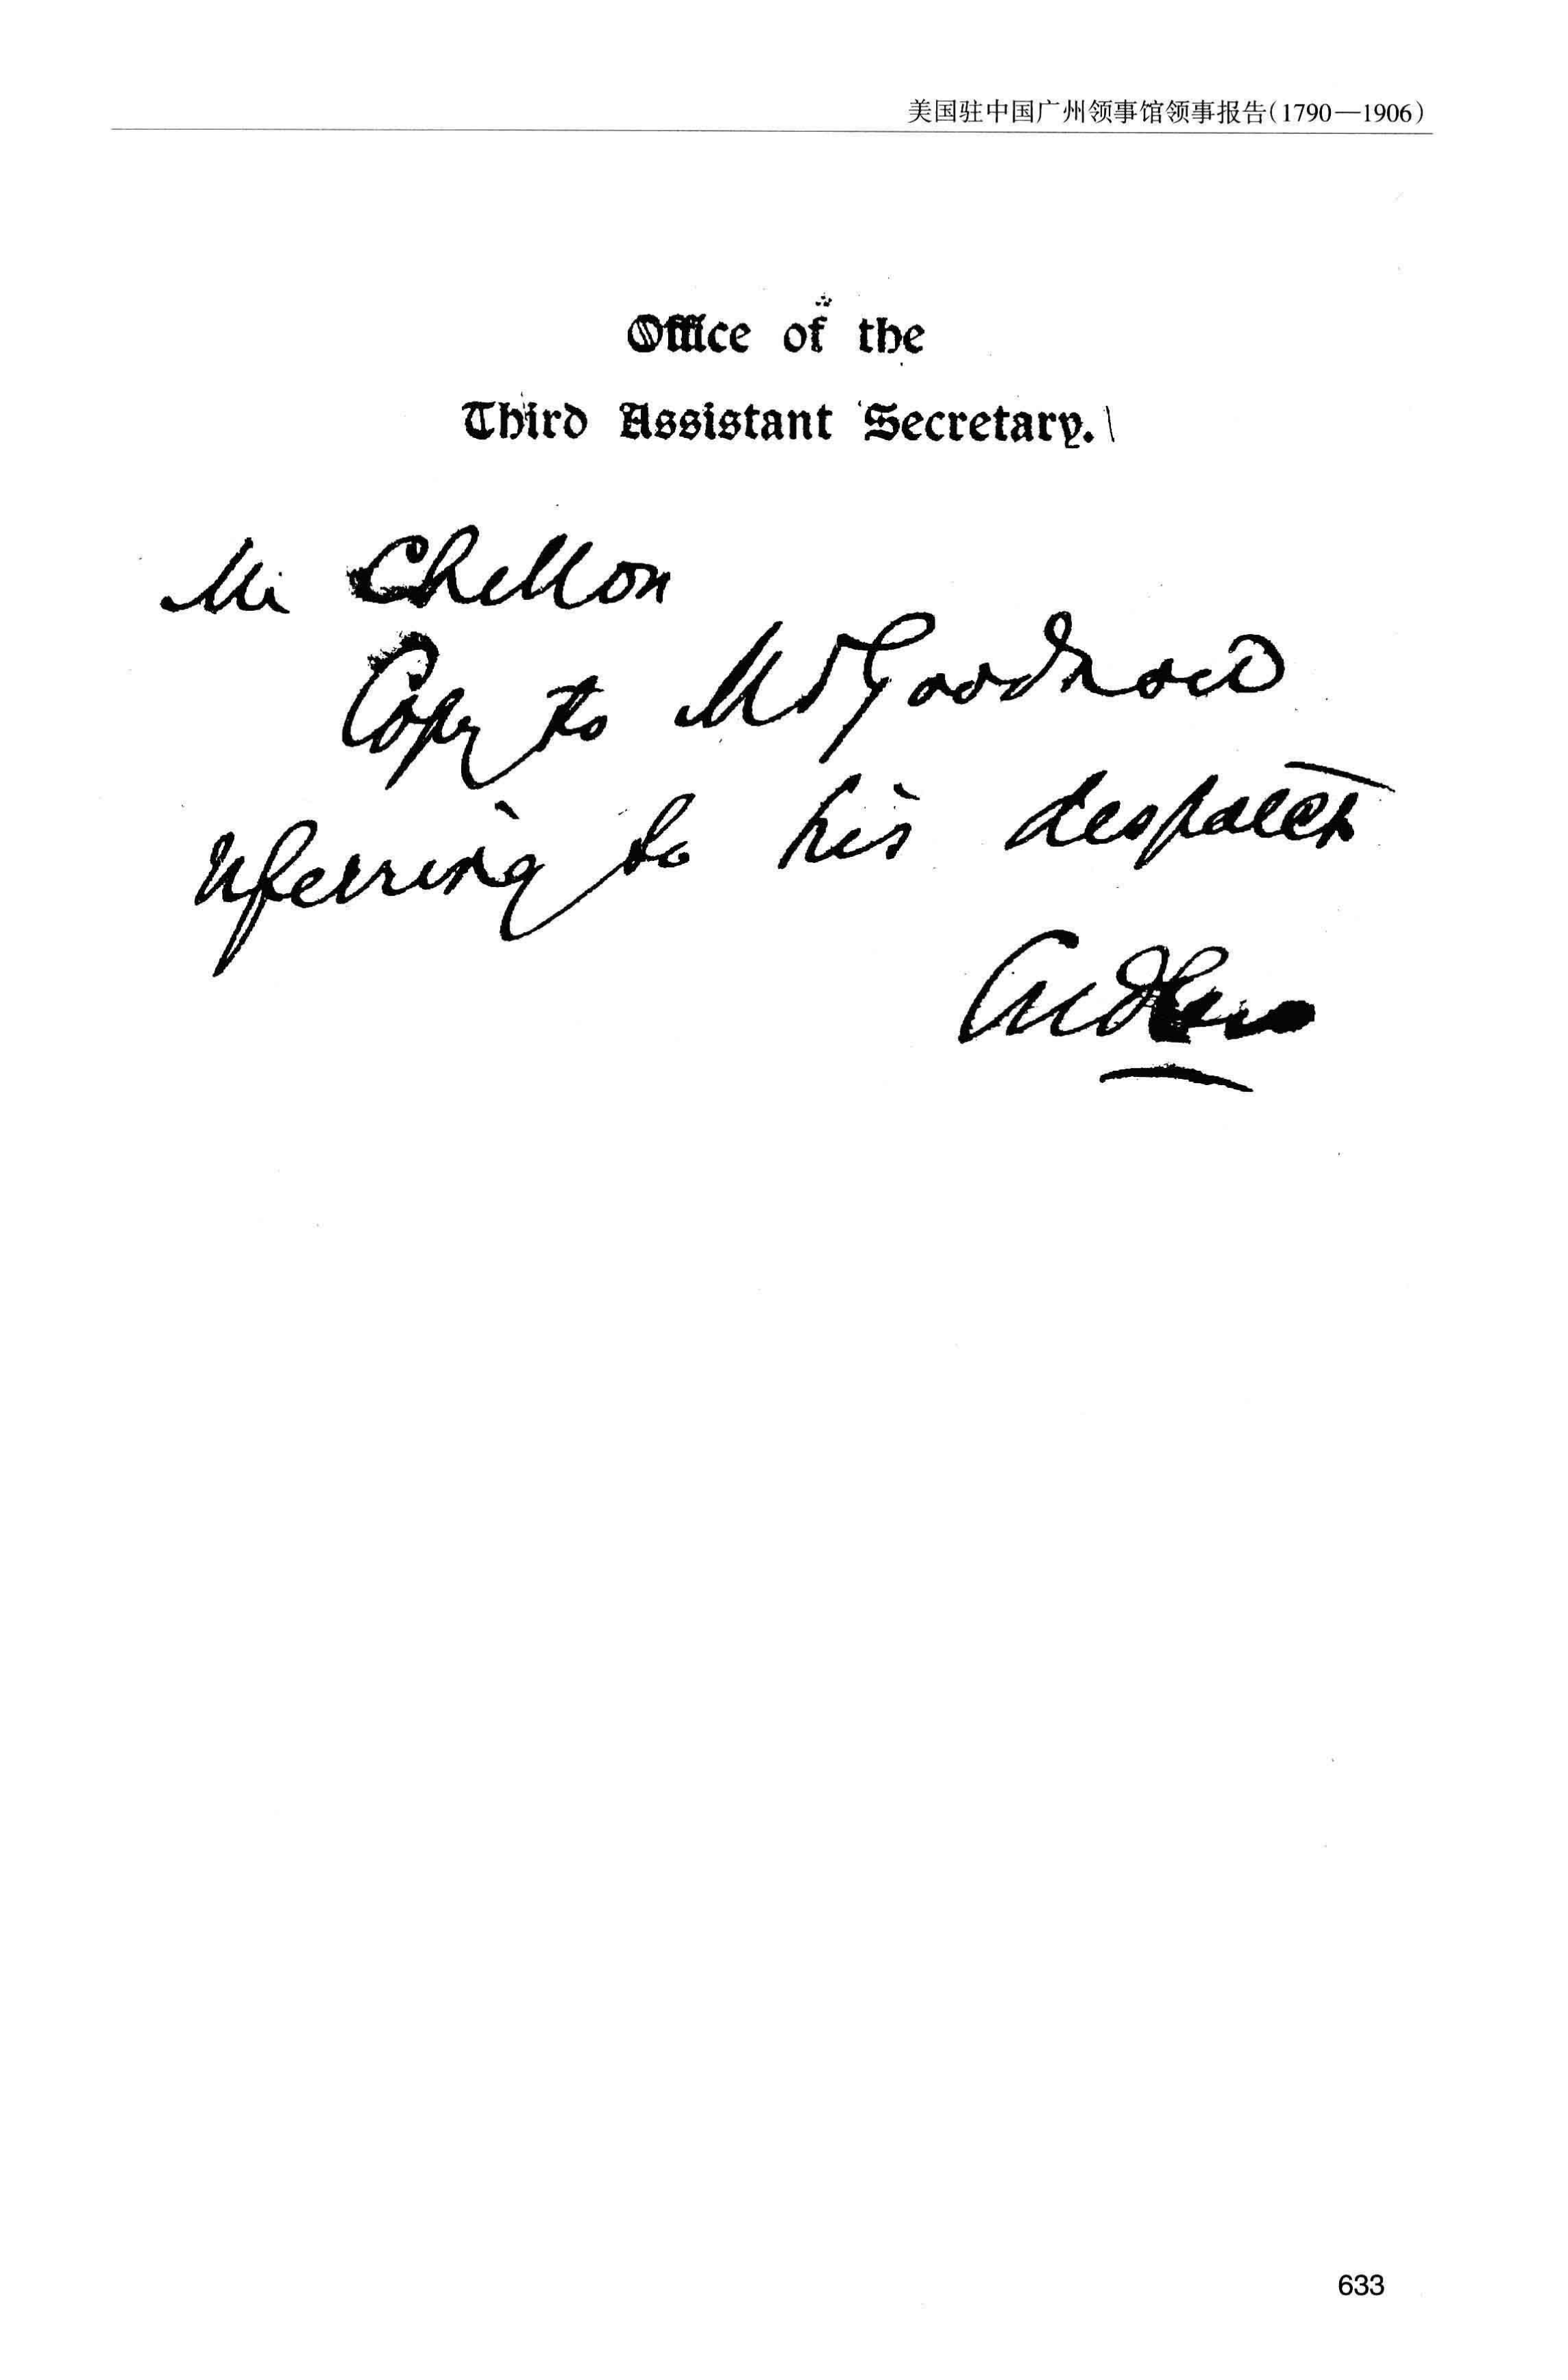 美国驻中国广州领事馆领事报告(1790—1906)
Office of the
Third Assistant Secretary.
Mr Chilton
Copy to Mr Goodnow
referring to his despatch
633